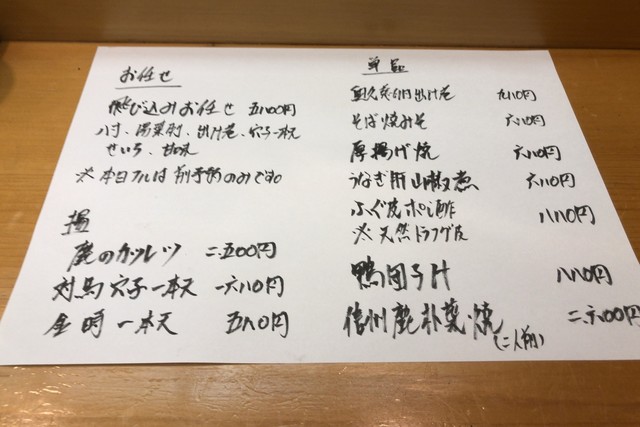 お任せ
飛び込みお任せ 五八〇〇円
八寸、湯葉刺、出汁巻、穴子一本天
せいろ、甘味
※本日フルは前予約のみです。
揚
鹿のカツレツ 二五〇〇円
対馬穴子一本天 一六八〇円
金時一本天 五八〇円
単品
奥久慈卵出汁巻 九八〇円
そば焼みそ 六八〇円
厚揚げ焼 六八〇円
うなぎ肝山椒煮 六八〇円
ふぐ皮ポン酢 八八〇円
※天然トラフグ皮
鴨団子汁 八八〇円
信州鹿朴葉焼 二六〇〇円
(二人前)